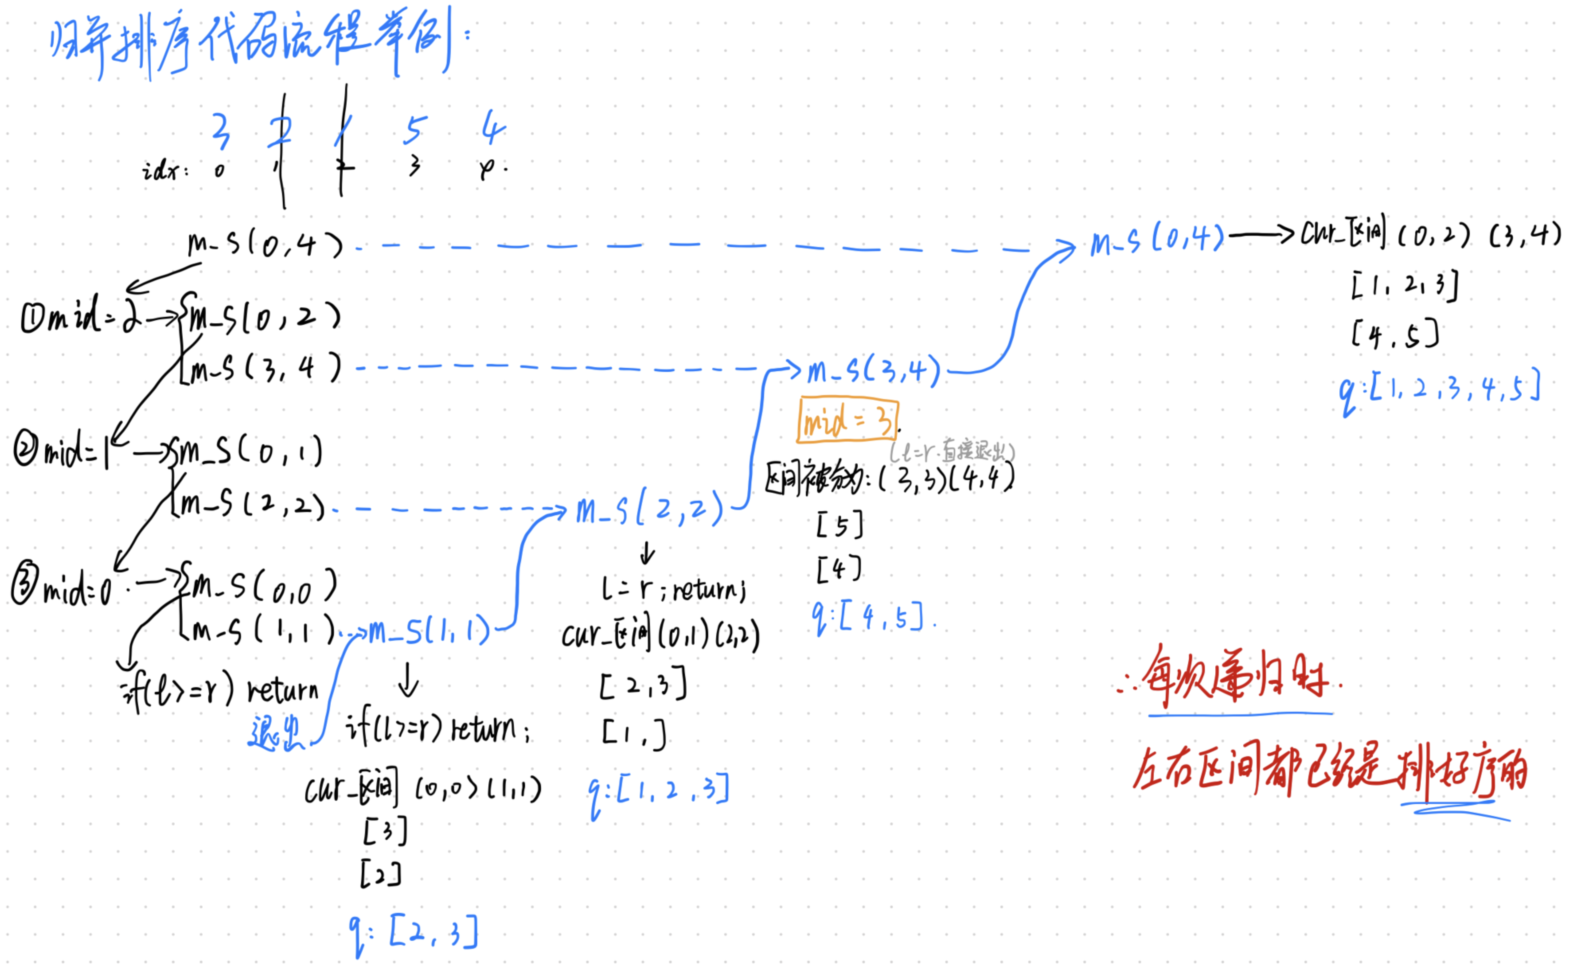 归并排序代码流程举例：
3 2 1 5 4
idx: 0 1 2 3 4.
m_s(0,4)
①mid=2→m_s(0,2)
m_s(3,4)
②mid=1→m_s(0,1)
m_s(2,2)
③mid=0→m_s(0,0)
m_s(1,1)
if(l>=r) return
退出
m_s(1,1)
if(l>=r) return;
cur_区间 (0,0)(1,1)
[3]
[2]
q: [2,3]
m_s(2,2)
l=r;return;
cur_区间(0,1)(2,2)
[2,3]
[1,]
q:[1,2,3]
m_s(3,4)
mid=3.
(l=r.直接退出)
区间被分为:(3,3)(4,4)
[5]
[4]
q:[4,5].
m_s(0,4)→cur_区间(0,2) (3,4)
[1,2,3]
[4,5]
q:[1,2,3,4,5]
∴每次递归时.
左右区间都已经是排好序的